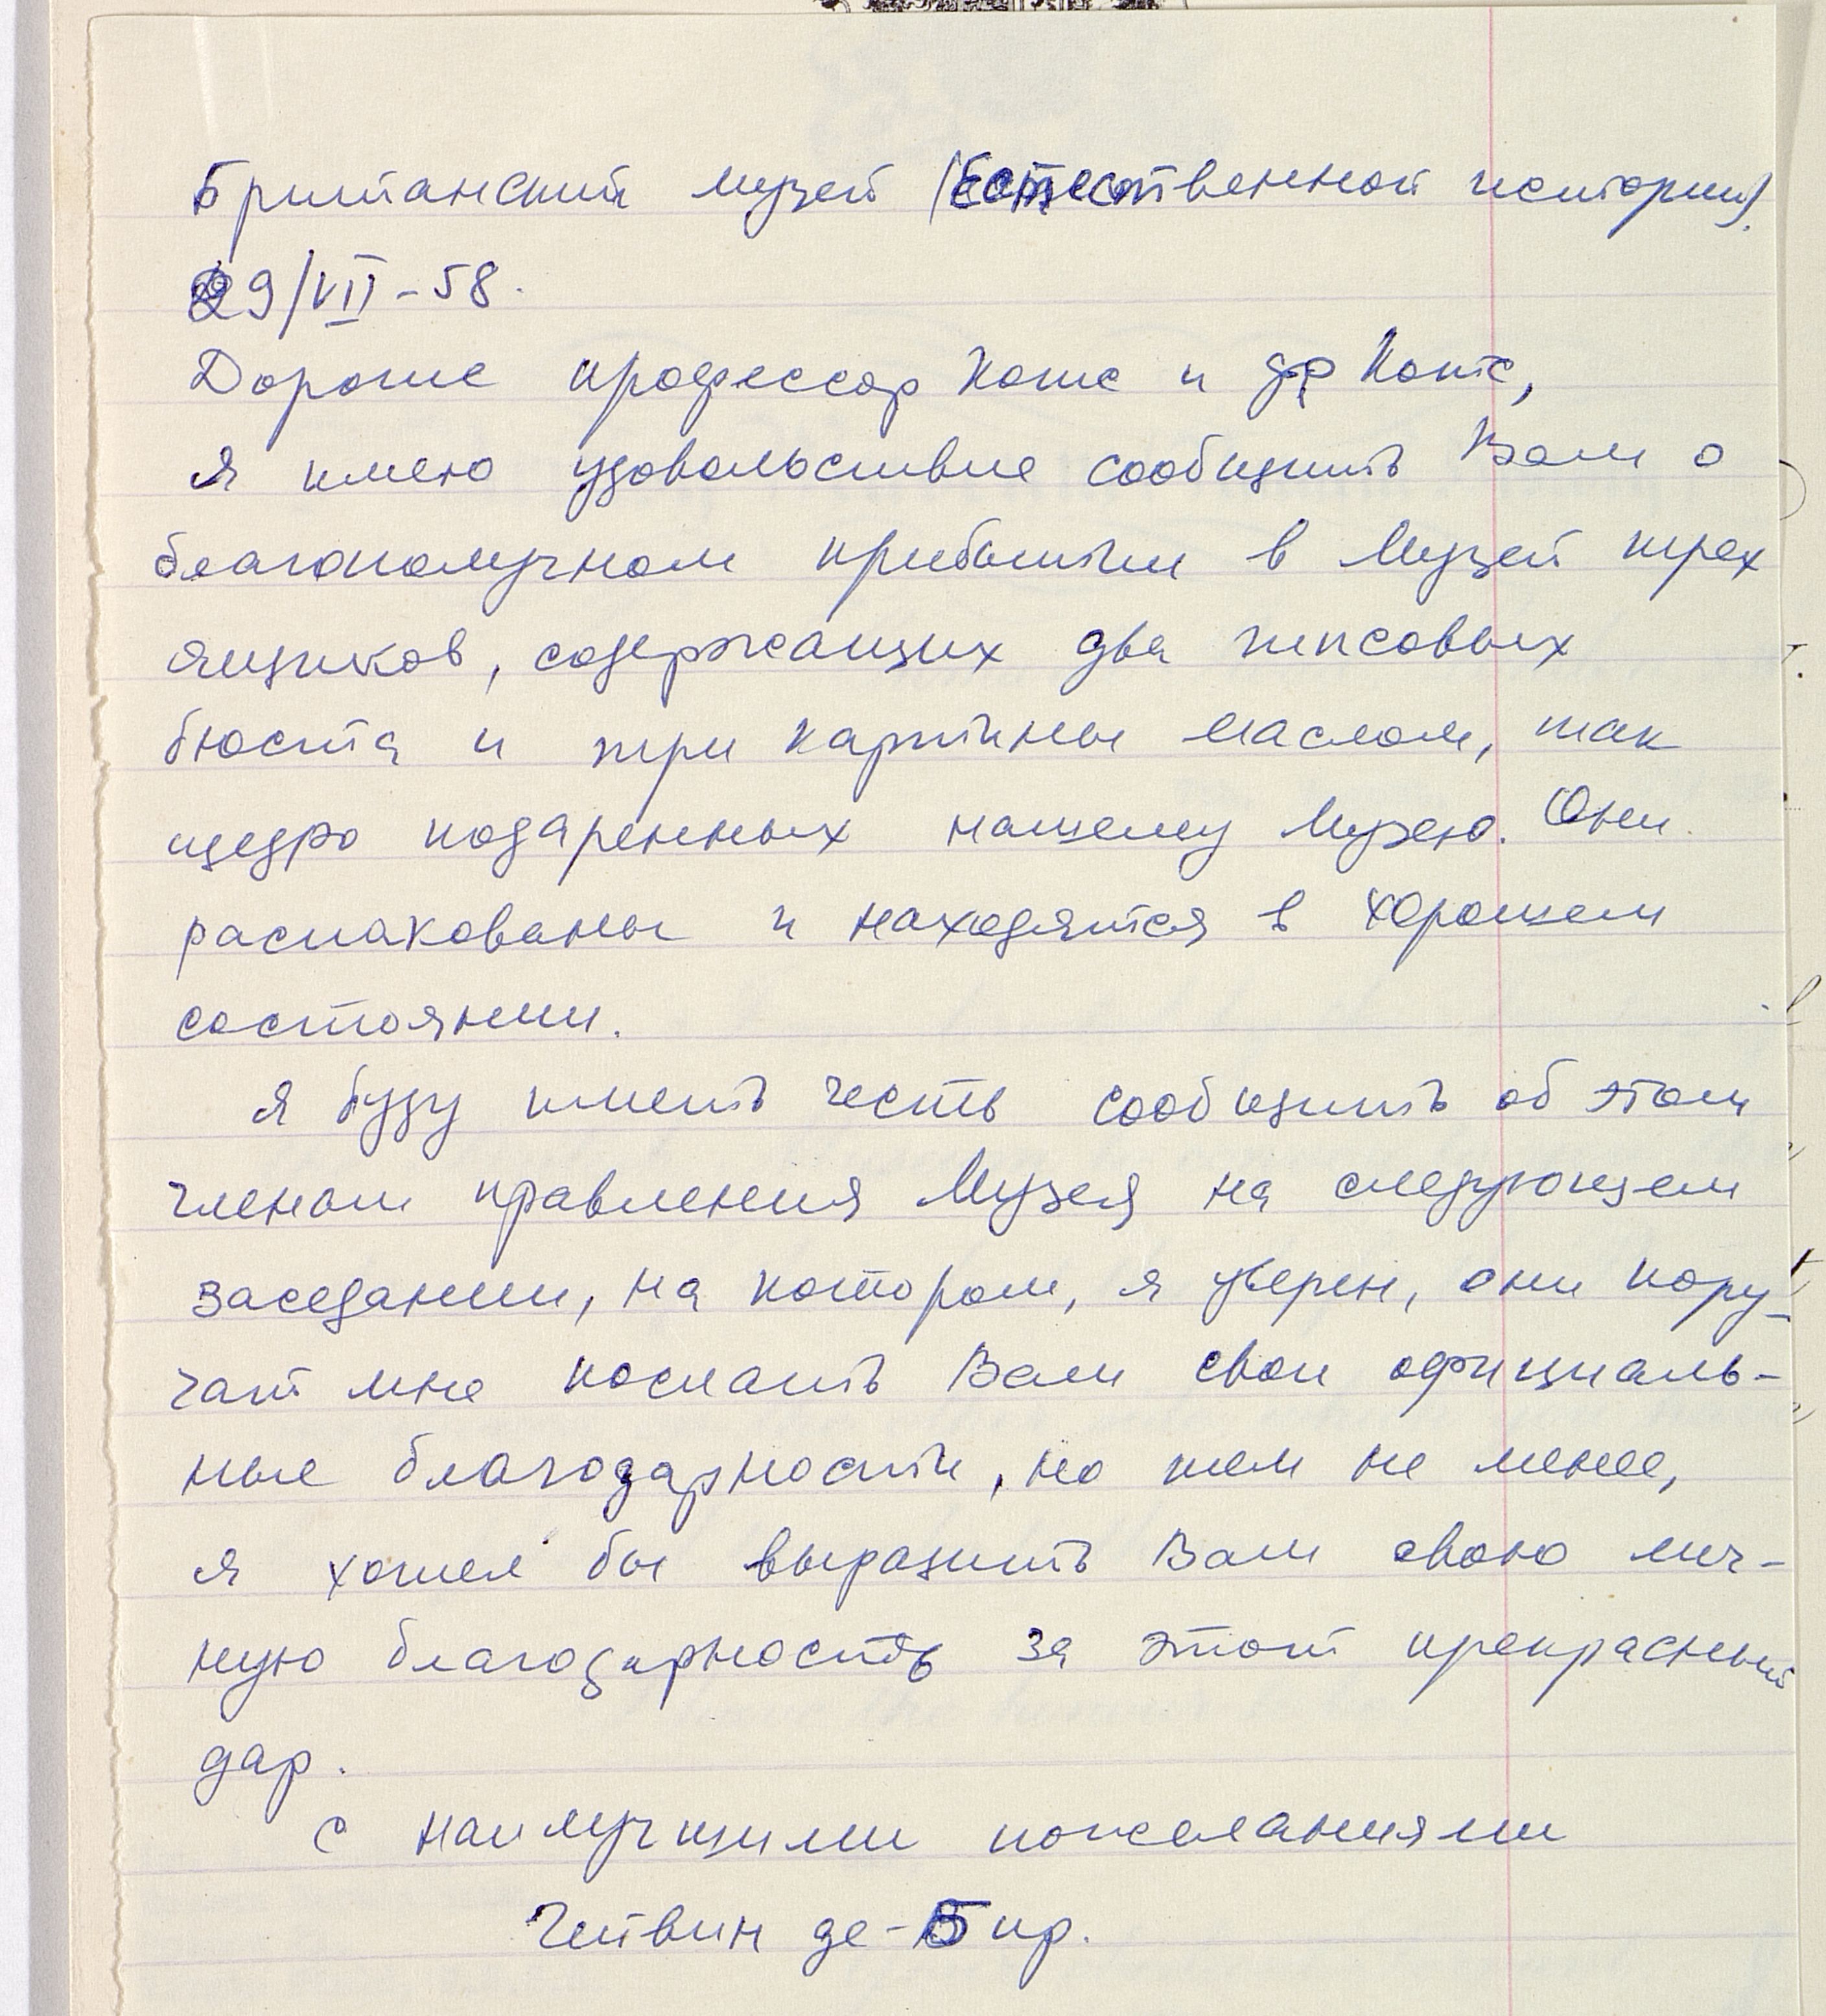 Британский музей (Естественной истории).
29/VII-58.
Дорогие профессор Котс и др Котс,
Я имею удовольствие сообщить Вам о
благополучном прибытии в Музей трех
ящиков, содержащих два гипсовых
бюста и три картины маслом, так
щедро подаренных нашему Музею. Они
распакованы и находятся в хорошем
состоянии.
Я буду иметь честь сообщить об этом
членам правления Музея на следующем
заседании, на котором, я уверен, они пору-
чат мне послать Вам свои официаль-
ные благодарности, но тем не менее,
я хотел бы выразить Вам свою лич-
ную благодарность за этот прекрасный
дар.
С наилучшими пожеланиями
Гейвин де-Бир.